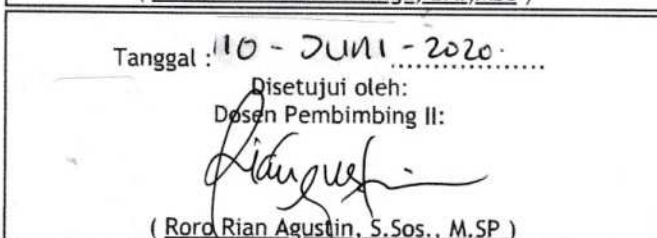 Tanggal : 10 - JUNI - 2020
Disetujui oleh:
Dosen Pembimbing II:
( Roro Rian Agustin, S.Sos., M.SP )